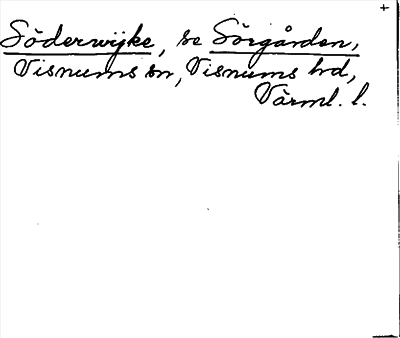 +
Söderwijke, se Sörgården,
Visnums sn, Visnums hd,
Värml. l.